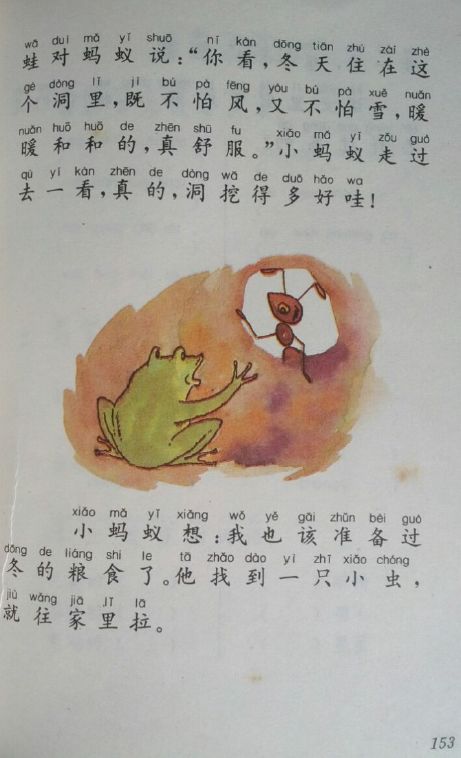 wā duì mǎ yǐ shuō nǐ kàn dōng tiān zhù zài zhè
蛙对蚂蚁说：“你看，冬天住在这
gè dòng lǐ jì bú pà fēng yòu bú pà xuě nuǎn
个洞里，既不怕风，又不怕雪，暖
nuǎn huō huō de zhēn shū fu xiǎo mǎ yǐ zǒu guò
暖和和的，真舒服。”小蚂蚁走过
qù yí kàn zhēn de dòng wā de duō hǎo wa
去一看，真的，洞挖得多好哇！
xiǎo mǎ yǐ xiǎng wǒ yě gāi zhǔn bèi guò
小蚂蚁想：我也该准备过
dōng de liáng shi le tā zhǎo dào yì zhī xiǎo chóng
冬的粮食了。他找到一只小虫，
jiù wǎng jiā lǐ lā
就往家里拉。
153